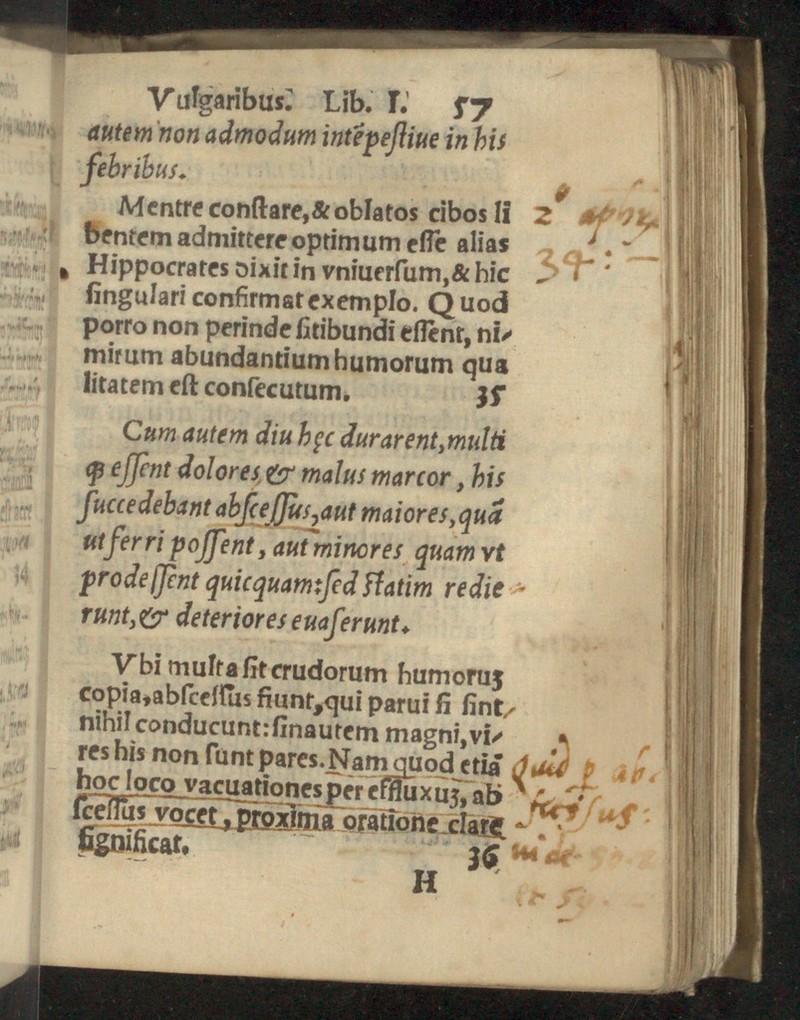 Vulgaribus. Lib. I. 57
autem non admodum intẽpeſtiue in his
febribus.
Mentre conſtare,& oblatos cibos li
bentem admittere optimum eſſe alias
Hippocrates dixit in vniuerſum,& hic
ſingulari confirmat exemplo. Quod
porro non perinde ſitibundi eſſent, ni-
mirum abundantium humorum qua
litatem eſt conſecutum. 35
Cum autem diu hęc durarent,multi
ꝙ eſſent dolores,& malus marcor, his
ſuccedebant abſceſſus,aut maiores,quã
ut ferri poſſent, aut minores quam vt
prodeſſent quicquam:ſed ſtatim redie-
runt,& deteriores euaſerunt.
Vbi multa ſit crudorum humoruʒ
copia,abſceſſus fiunt,qui parui ſi ſint,
nihil conducunt:ſin autem magni,vi-
res his non ſunt pares. Nam quod etiã
hoc loco vacuationes per effluxuʒ, ab
ſceſſus vocet, proxima oratione clare
ſignificat. 36
H
2° apho
34: —
Quid p ab